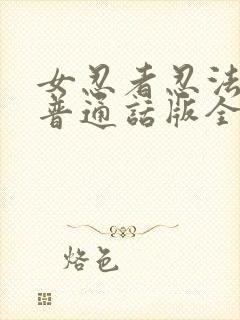 女忍者忍法
普通話版全
烙色